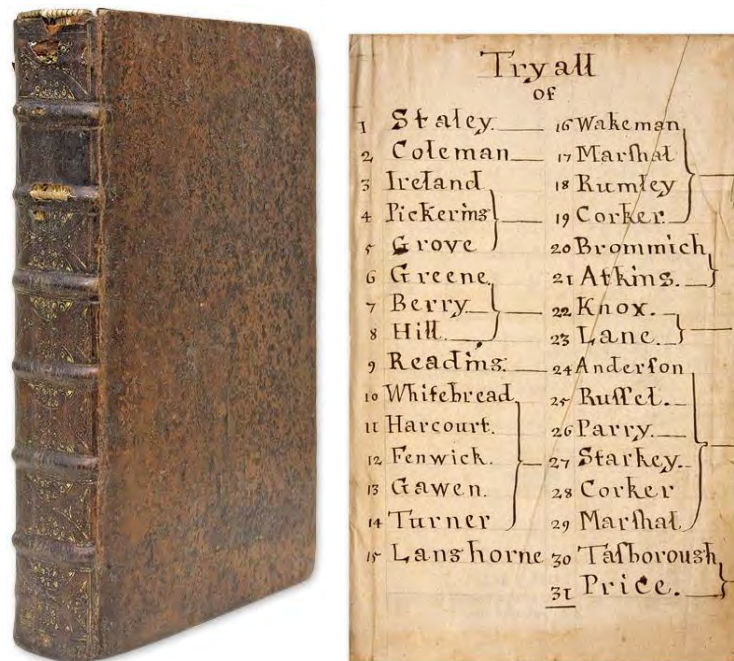 Tryall
of
1 Staley.
2 Coleman
3 Ireland
4 Pickering
5 Grove
6 Greene.
7 Berry
8 Hill.
9 Reading.
10 Whitebread
11 Harcourt.
12 Fenwick.
13 Gawen.
14 Turner
15 Langhorne
16 Wakeman
17 Marſhal
18 Rumley
19 Corker.
20 Brommich
21 Atkins.
22 Knox.
23 Lane.
24 Anderſon
25 Ruſſel.
26 Parry.
27 Starkey.
28 Corker
29 Marſhal
30 Taſborough
31 Price.